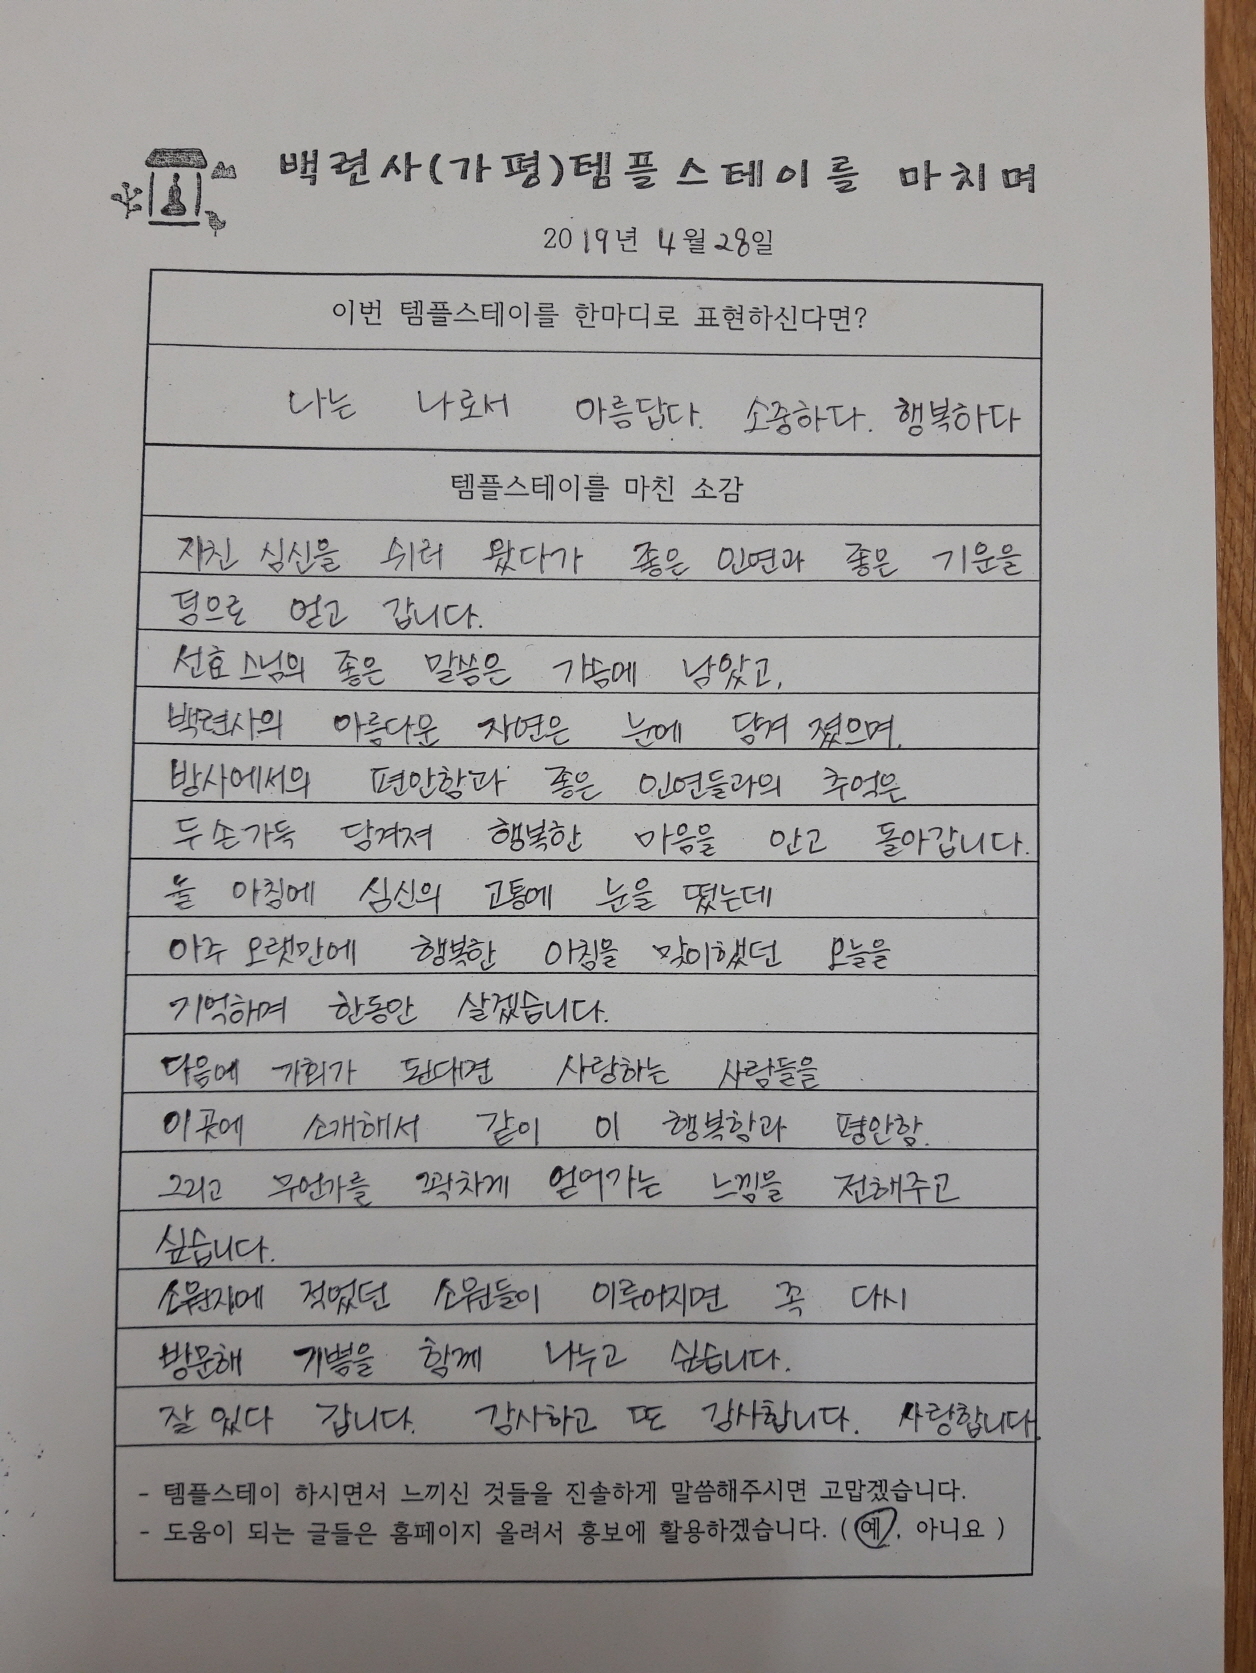 백련사(가평)템플스테이를 마치며
2019년 4월 28일
이번 템플스테이를 한마디로 표현하신다면?
나는 나로서 아름답다. 소중하다. 행복하다
템플스테이를 마친 소감
지친 심신을 쉬러 왔다가 좋은 인연과 좋은 기운을
덤으로 얻고 갑니다.
선효스님의 좋은 말씀은 가슴에 남았고,
백련사의 아름다운 자연은 눈에 담겨졌으며,
방사에서의 편안함과 좋은 인연들과의 추억은
두손가득 담겨져 행복한 마음을 안고 돌아갑니다.
늘 아침에 심신의 고통에 눈을 떴는데
아주 오랫만에 행복한 아침을 맞이했던 오늘을
기억하며 한동안 살겠습니다.
다음에 기회가 된다면 사랑하는 사람들을
이곳에 소개해서 같이 이 행복함과 평안함.
그리고 무언가를 꽉차게 얻어가는 느낌을 전해주고
싶습니다.
소원지에 적었던 소원들이 이루어지면 꼭 다시
방문해 기쁨을 함께 나누고 싶습니다.
잘 있다 갑니다. 감사하고 또 감사합니다. 사랑합니다.
- 템플스테이 하시면서 느끼신 것들을 진솔하게 말씀해주시면 고맙겠습니다.
- 도움이 되는 글들은 홈페이지 올려서 홍보에 활용하겠습니다. ( 예, 아니요 )